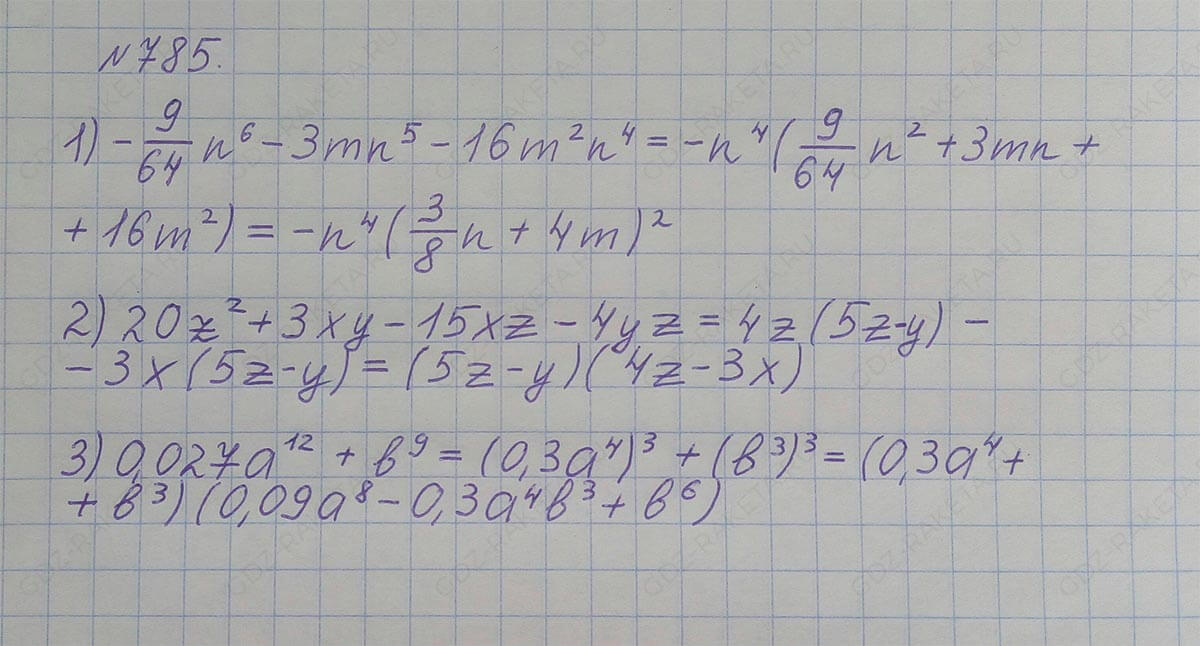 №785.
1) -9/64 n⁶ - 3mn⁵ - 16m²n⁴ = -n⁴(9/64 n² + 3mn +
+ 16m²) = -n⁴(3/8 n + 4m)²
2) 20z² + 3xy - 15xz - 4yz = 4z(5z-y) -
- 3x(5z-y) = (5z-y)(4z-3x)
3) 0,027a¹² + b⁹ = (0,3a⁴)³ + (b³)³ = (0,3a⁴ +
+ b³)(0,09a⁸ - 0,3a⁴b³ + b⁶)
GDZ-RAKETA.RU